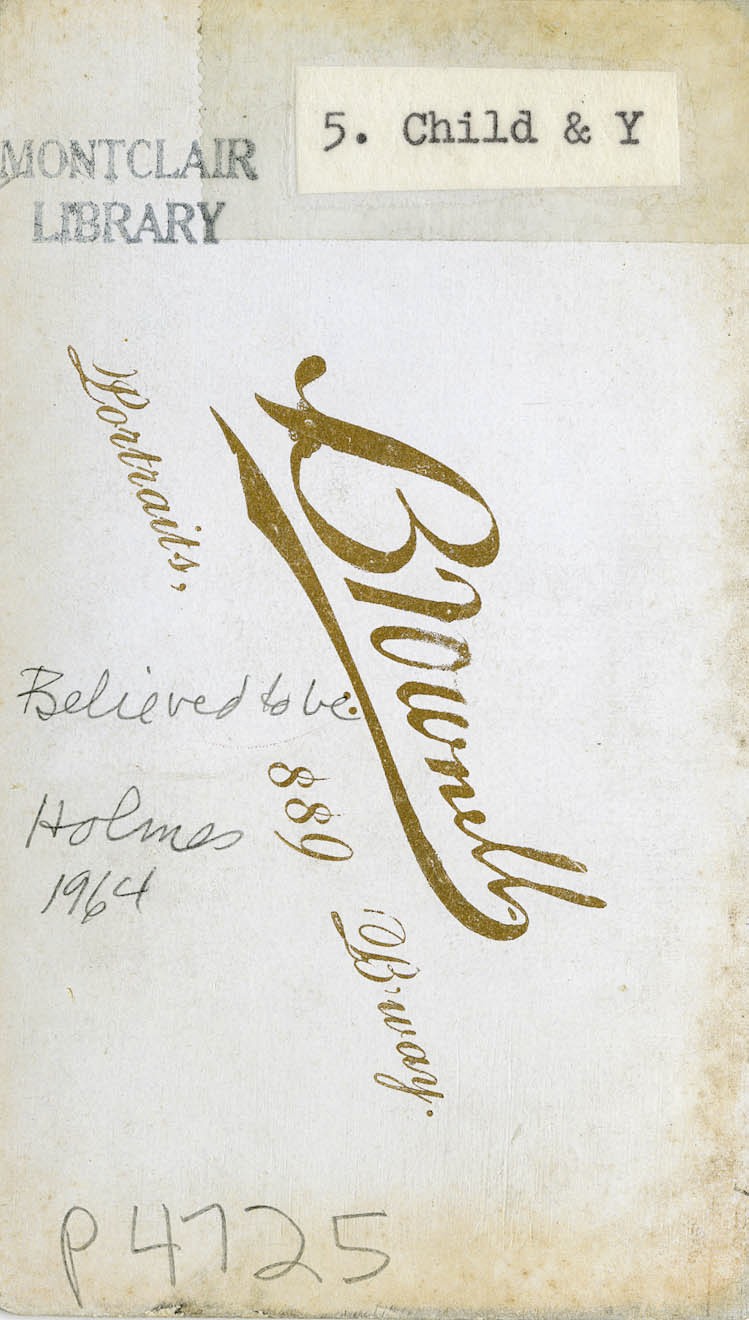 5. Child & Y
MONTCLAIR
LIBRARY
Brownell
Portraits,
889 B'way.
Believed to be
Holmes
1964
P4725